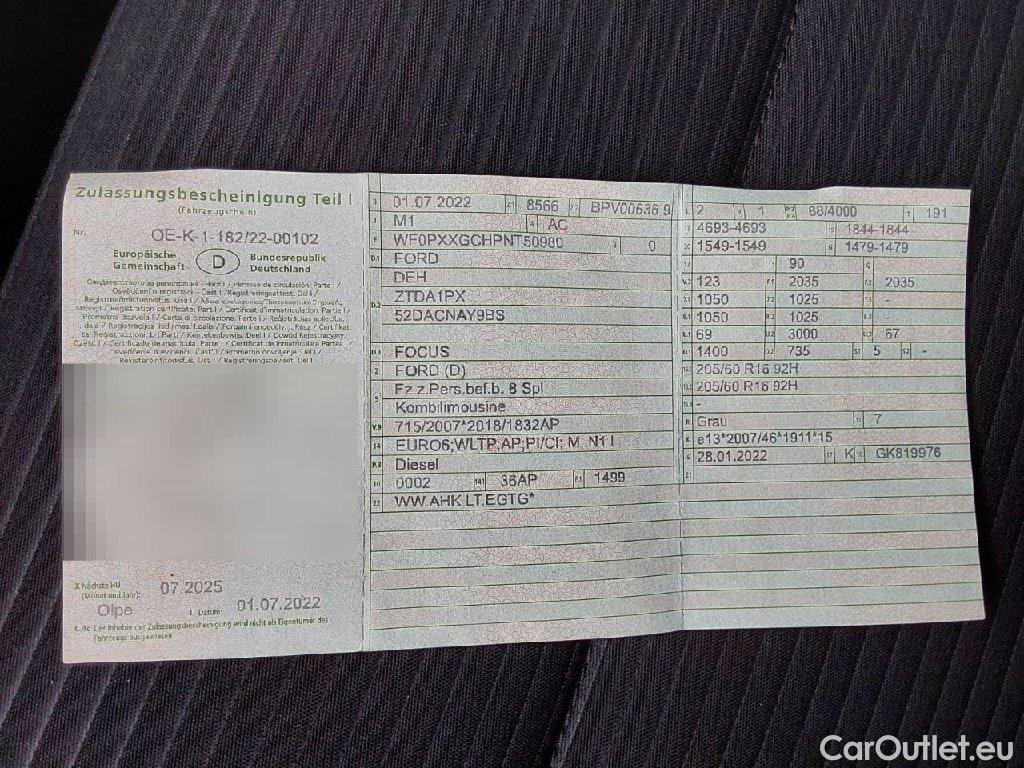 Zulassungsbescheinigung Teil I
(Fahrzeugschein)
Nr. OE-K-1-182/22-00102
Europäische Gemeinschaft D Bundesrepublik Deutschland
X Nächste HU (Monat und Jahr): 07.2025
Olpe I Datum: 01.07.2022
C.4c Der Inhaber der Zulassungsbescheinigung wird nicht als Eigentümer des
Fahrzeugs ausgewiesen
01.07.2022 2.1 8566 2.2 BPV00636 9
J M1 4 AC
E WF0PXXGCHPNT50980 3 0
D.1 FORD
DEH
D.2 ZTDA1PX
52DACNAY9BS
D.3 FOCUS
2 FORD (D)
5 Fz.z.Pers.bef.b. 8 Spl
Kombilimousine
V.9 715/2007*2018/1832AP
14 EURO6;WLTP;AP;PI/CI; M, N1 I
P.3 Diesel
10 0002 14.1 36AP P.1 1499
22 WW.AHK LT.EGTG*
L 2 9 1 P.2 P.4 88/4000 T 191
18 4693-4693 19 1844-1844
20 1549-1549 G 1479-1479
12 - 13 90 Q -
V.7 123 F.1 2035 F.2 2035
7.1 1050 7.2 1025 7.3 -
8.1 1050 8.2 1025 8.3 -
U.1 69 U.2 3000 U.3 67
O.1 1400 O.2 735 S.1 5 S.2 -
15.1 205/60 R16 92H
15.2 205/60 R16 92H
15.3 -
R Grau 11 7
K e13*2007/46*1911*15
6 28.01.2022 17 K 16 GK819976
21
CarOutlet.eu